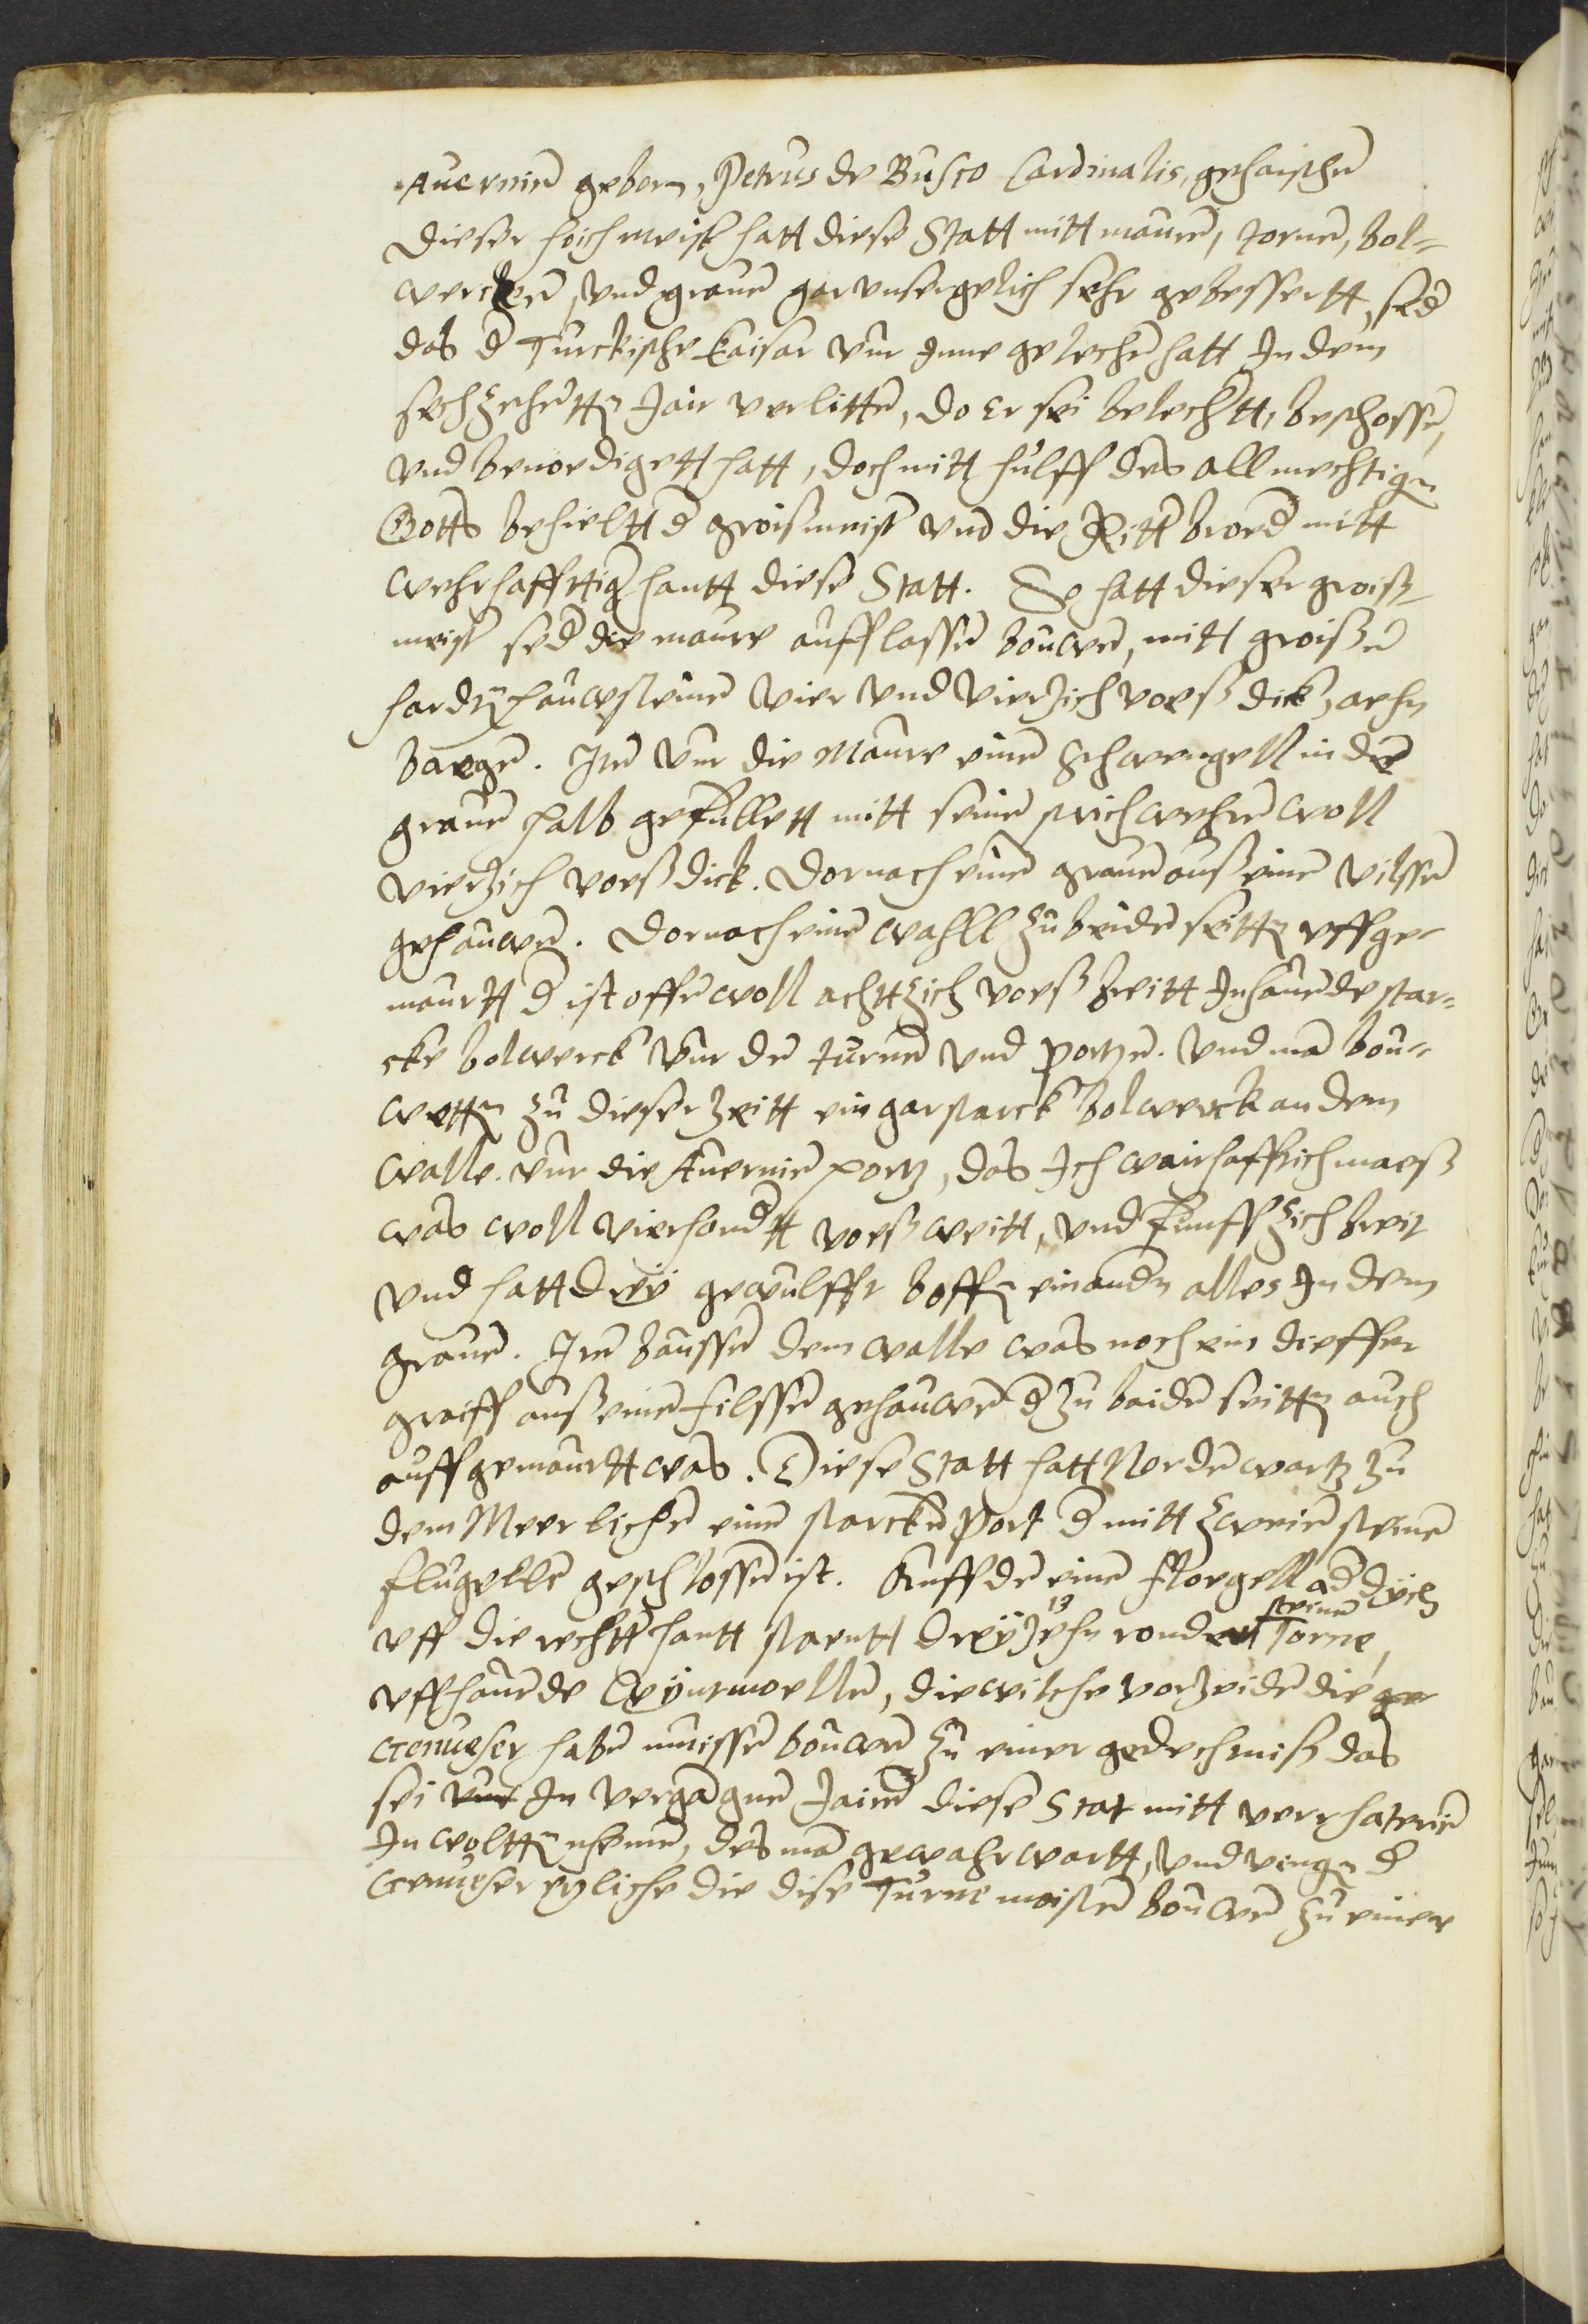 Auernien geborn, Petrus de Busco Cardinalis, gehaischen
Dieser hoichmeist hatt diese Statt mitt mauren, tornen, bol-
wercken, vnd grauen gar vnsergelich sehr gebessertt, sed
das d Turckische kaisar vur Inne gelechen hatt In dem
sechzehentten Jair verlitten, do er sei belechtt, beschossen,
vnd benoedigett hatt, doch mitt hulff des allmechtigen
Gotts behieltt d groismeist vnd die Ritt broed mitt
wehrhafftiger hantt diese Statt. So hatt dieser groiß-
meist sed die maure auff lassen bouwen, mitt groißen
harden hauwsteinen vier vnd viertzich voeß dick, zaehn
baegen. Item vur die Maure einen schwengell in den
grauen halb gefullett mitt seinen strichwehren woll
viertzich voeß dick. Dornach einen grauen auß einen vilssen
gehauwen. Dornach einen wahll zu beiden seitten vffge-
maurtt d ist offen woll achtzich voeß breitt Inhauende star-
cke bolwerck vur den turnen vnd portzen. Vnd man bou-
wetten zu dieser zeitt ein gar starck bolwerck an dem
walle. vur die Auernien portz, das Ich wairhafftich maeß
was woll vierhondtt voeß weitt, vnd funffzich breit
vnd hatt dreÿ gewulffe boffen einanden alles In dem
grauen. Item baussen dem walle was noch ein dieffer
graiff auß einen filssen gehauwen d zu baiden seitten auch
auffgemaurtt was. Diese Statt hatt Norden wartz zu
dem Meer lichen einen starcken port d mitt zweien steinen
flugellen geschlossen ist. Auff den einen floegell ad dÿck
vff die rechtt hantt staentt dreÿzehn 13 ronde steinen Torne,
vffhauende Weÿntmoellen, die wilche vorzeiden die
Genueser haben muissen bouwen zu einer gedechtniß das
sei In vergangnen Jairen diese Stat mitt verrhaterien
In woltten nhemen, des man gewahr wartt, vnd vingen d
Genueser etzliche die dise Turne moisten bouwen zu einer